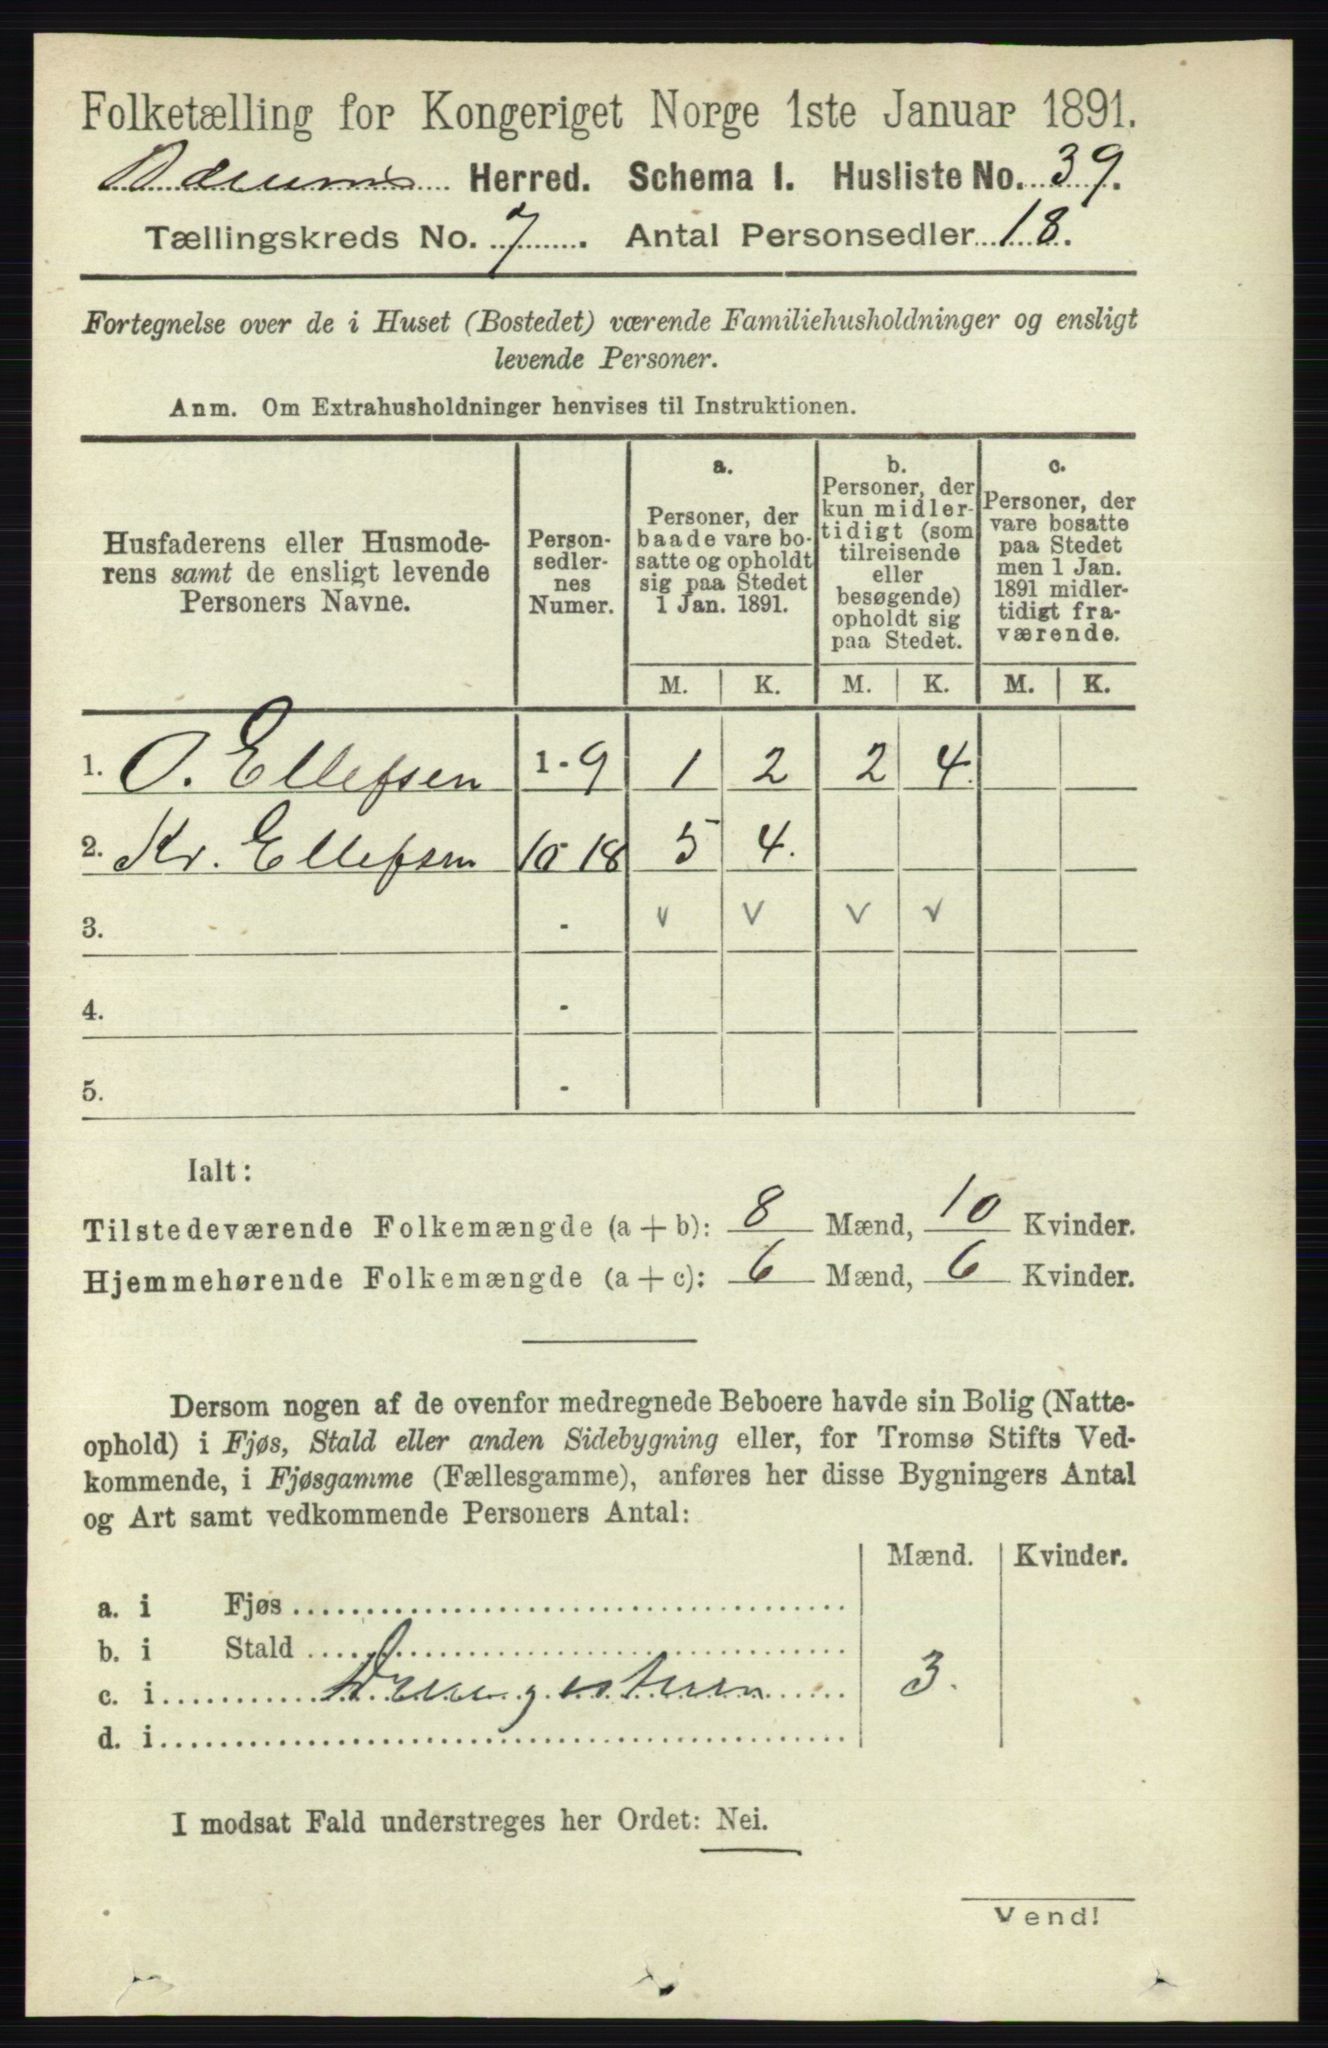 Folketælling for Kongeriget Norge 1ste Januar 1891.
Bærums Herred. Schema I. Husliste No. 39.
Tællingskreds No. 7. Antal Personsedler 18.
Fortegnelse over de i Huset (Bostedet) værende Familiehusholdninger og ensligt
levende Personer.
Anm. Om Extrahusholdninger henvises til Instruktionen.
Husfaderens eller Husmode-
rens samt de ensligt levende
Personers Navne.
Person-
sedler-
nes
Numer.
a.
Personer, der
baade vare bo-
satte og opholdt
sig paa Stedet
1 Jan. 1891.
b.
Personer, der
kun midler-
tidigt (som
tilreisende
eller
besøgende)
opholdt sig
paa Stedet.
c.
Personer, der
vare bosatte
paa Stedet
men 1 Jan.
1891 midler-
tidigt fra-
værende.
M. K. M. K. M. K.
1. O. Ellefsen 1-9 1 2 2 4
2. Kr. Ellefsen 10-18 5 4.
3. - v v v v
4. -
5. -
Ialt:
Tilstedeværende Folkemængde (a + b): 8 Mænd, 10 Kvinder.
Hjemmehørende Folkemængde (a + c): 6 Mænd, 6 Kvinder.
Dersom nogen af de ovenfor medregnede Beboere havde sin Bolig (Natte-
ophold) i Fjøs, Stald eller anden Sidebygning eller, for Tromsø Stifts Ved-
kommende, i Fjøsgamme (Fællesgamme), anføres her disse Bygningers Antal
og Art samt vedkommende Personers Antal:
Mænd. Kvinder.
a. i Fjøs
b. i Stald
c. i Drengestuen 3.
d. i
I modsat Fald understreges her Ordet: Nei.
Vend!